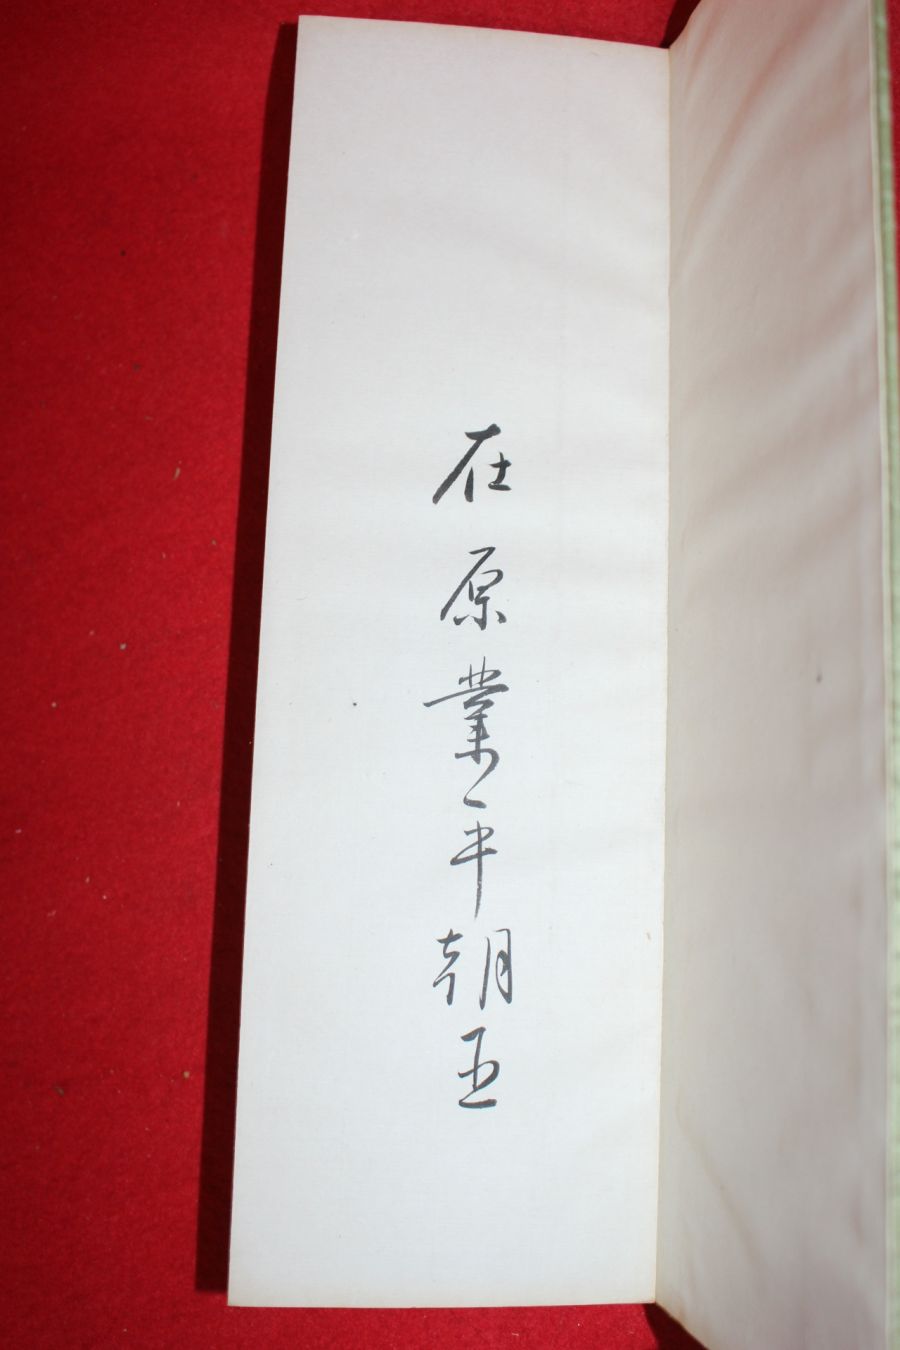 在原業平朝臣